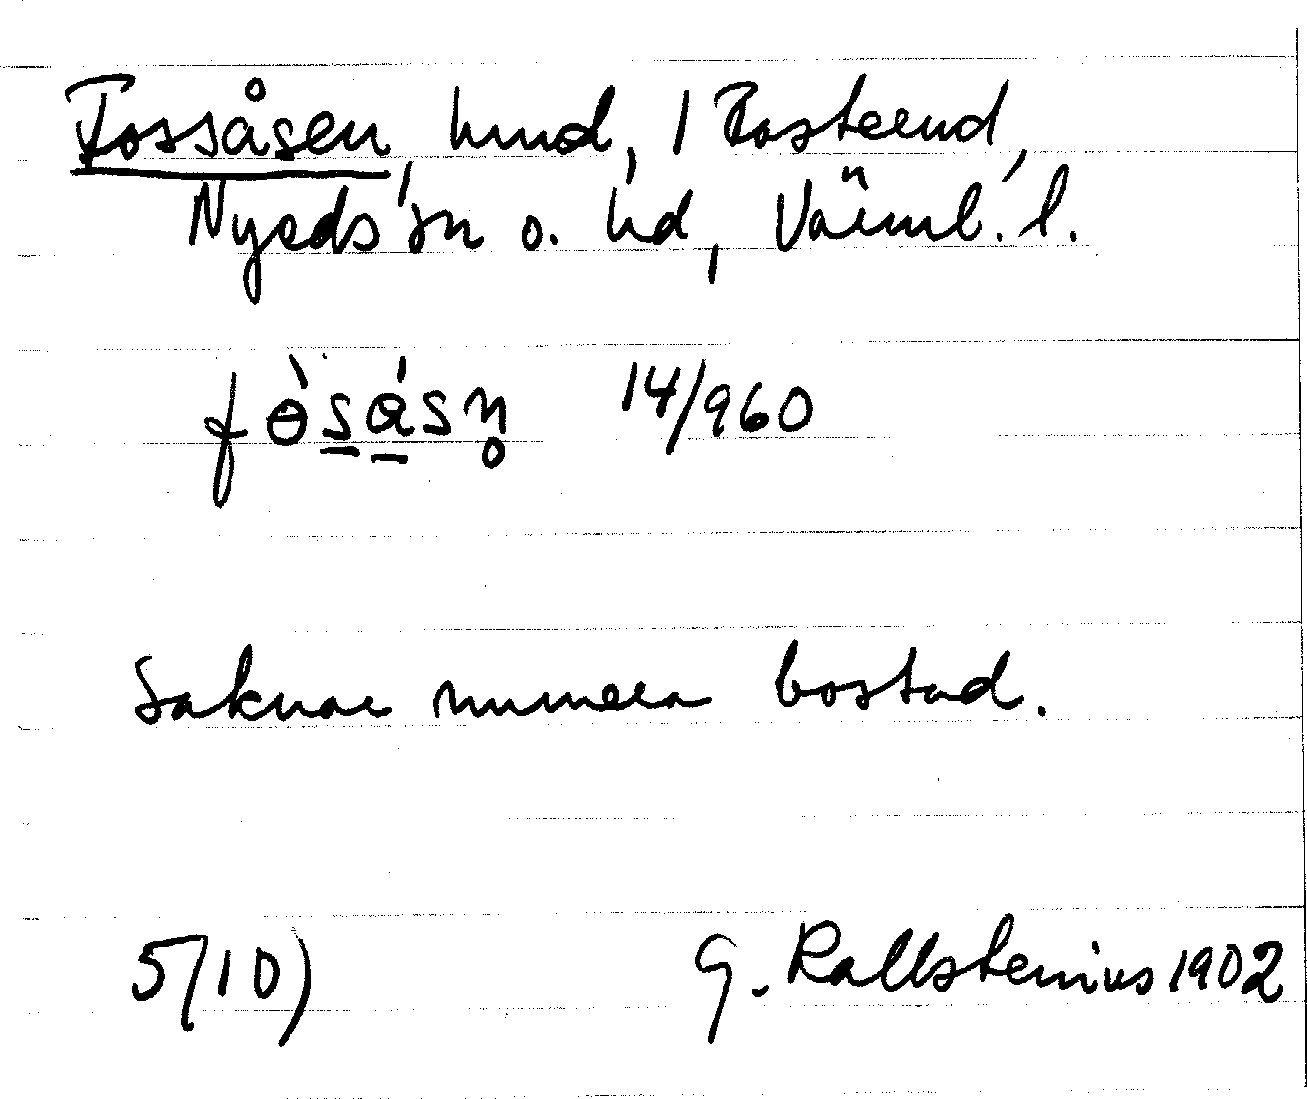 Fossåsen, hmd, / Rosterud,
Nyeds sn o. hd, Värml. l.
fɵ̀s̠á̠sn̥ 14/960
Saknar numera bostad.
5(10) G. Kallstenius 1902